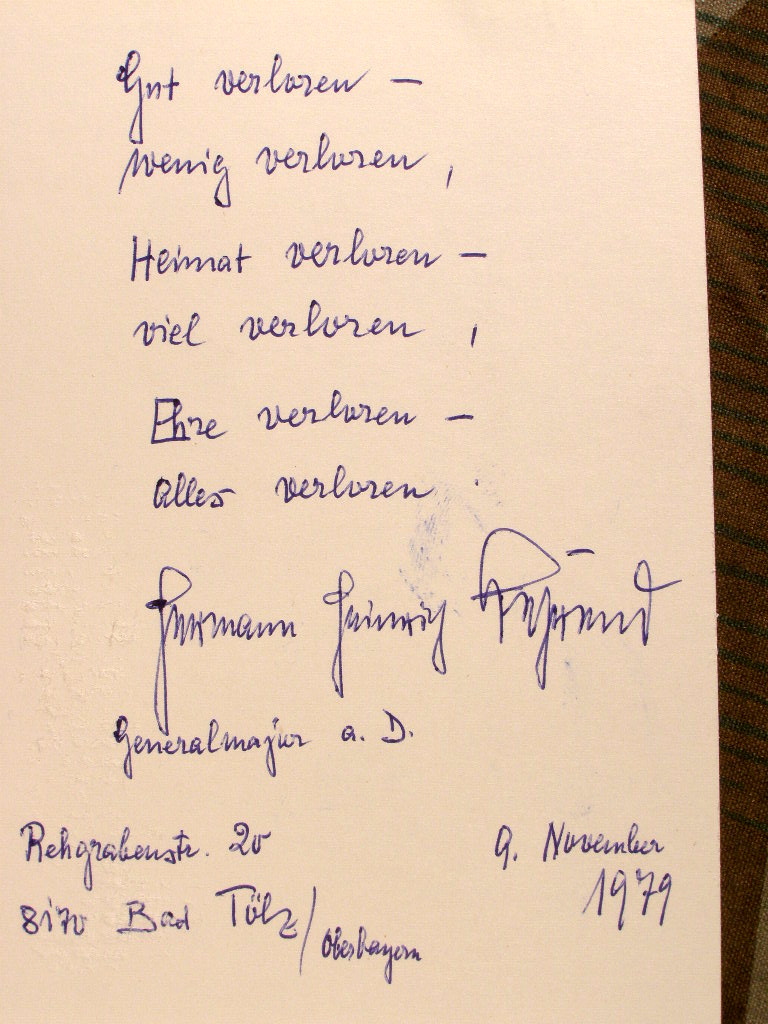 Gut verloren –
wenig verloren,
Heimat verloren –
viel verloren,
Ehre verloren –
alles verloren.
Hermann Heinrich Behrend
Generalmajor a. D.
Rehgrabenstr. 20
8170 Bad Tölz/Oberbayern
9. November
1979